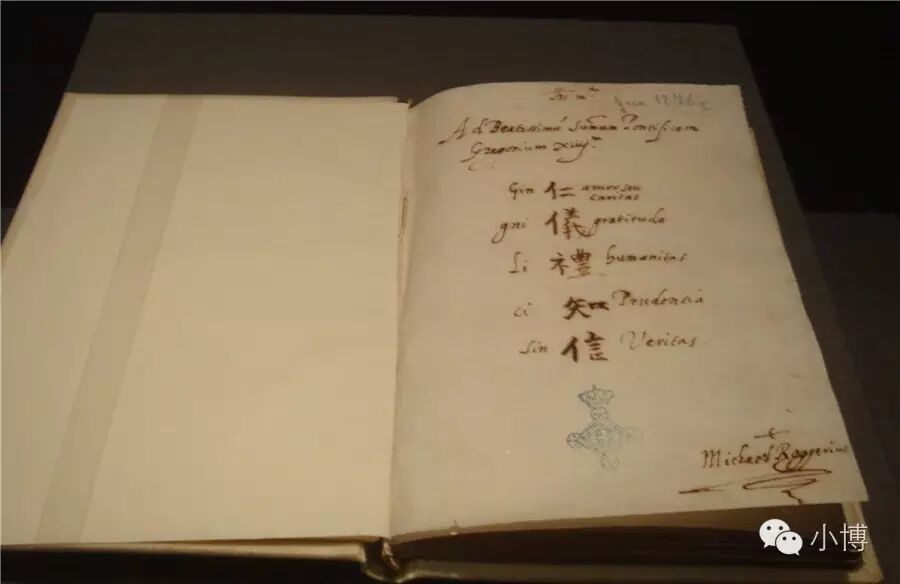 Ad Beatissimũ Sum̃um Pontificem
Gregorium xiiij
Gin 仁 amor seu
caritas
gni 儀 gratitudo
Li 禮 humanitas
ci 知 Prudentia
sin 信 Veritas.
Michael Roggerius
小博